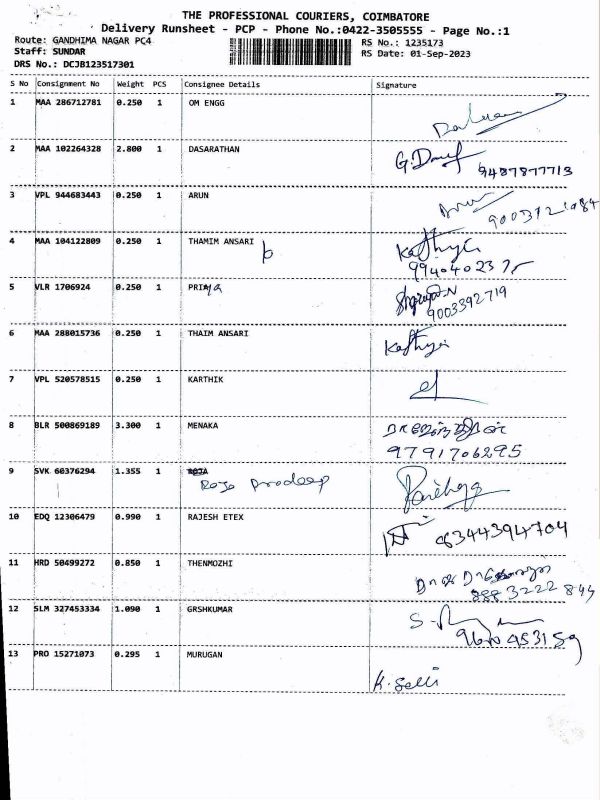 THE PROFESSIONAL COURIERS, COIMBATORE
Delivery Runsheet - PCP - Phone No.:0422-3505555 - Page No.:1
Route: GANDHIMA NAGAR PC4 RS No.: 1235173
Staff: SUNDAR RS Date: 01-Sep-2023
DRS No.: DCJB123517301
S No Consignment No Weight PCS Consignee Details Signature
1 MAA 286712781 0.250 1 OM ENGG
2 MAA 102264328 2.800 1 DASARATHAN
9487877713
3 VPL 944683443 0.250 1 ARUN
4 MAA 104122809 0.250 1 THAMIM ANSARI Kathija
5 VLR 1706924 0.250 1 PRIya
9003392719
6 MAA 288015736 0.250 1 THAIM ANSARI Kathija
7 VPL 520578515 0.250 1 KARTHIK
8 BLR 500869189 3.300 1 MENAKA
9791706295
9 SVK 60376294 1.355 1
Roja Pradeep
10 EDQ 12306479 0.990 1 RAJESH ETEX
6344394704
11 HRD 50499272 0.850 1 THENMOZHI
12 SLM 327453334 1.090 1 GRSHKUMAR
13 PRO 15271073 0.295 1 MURUGAN
K. Selli